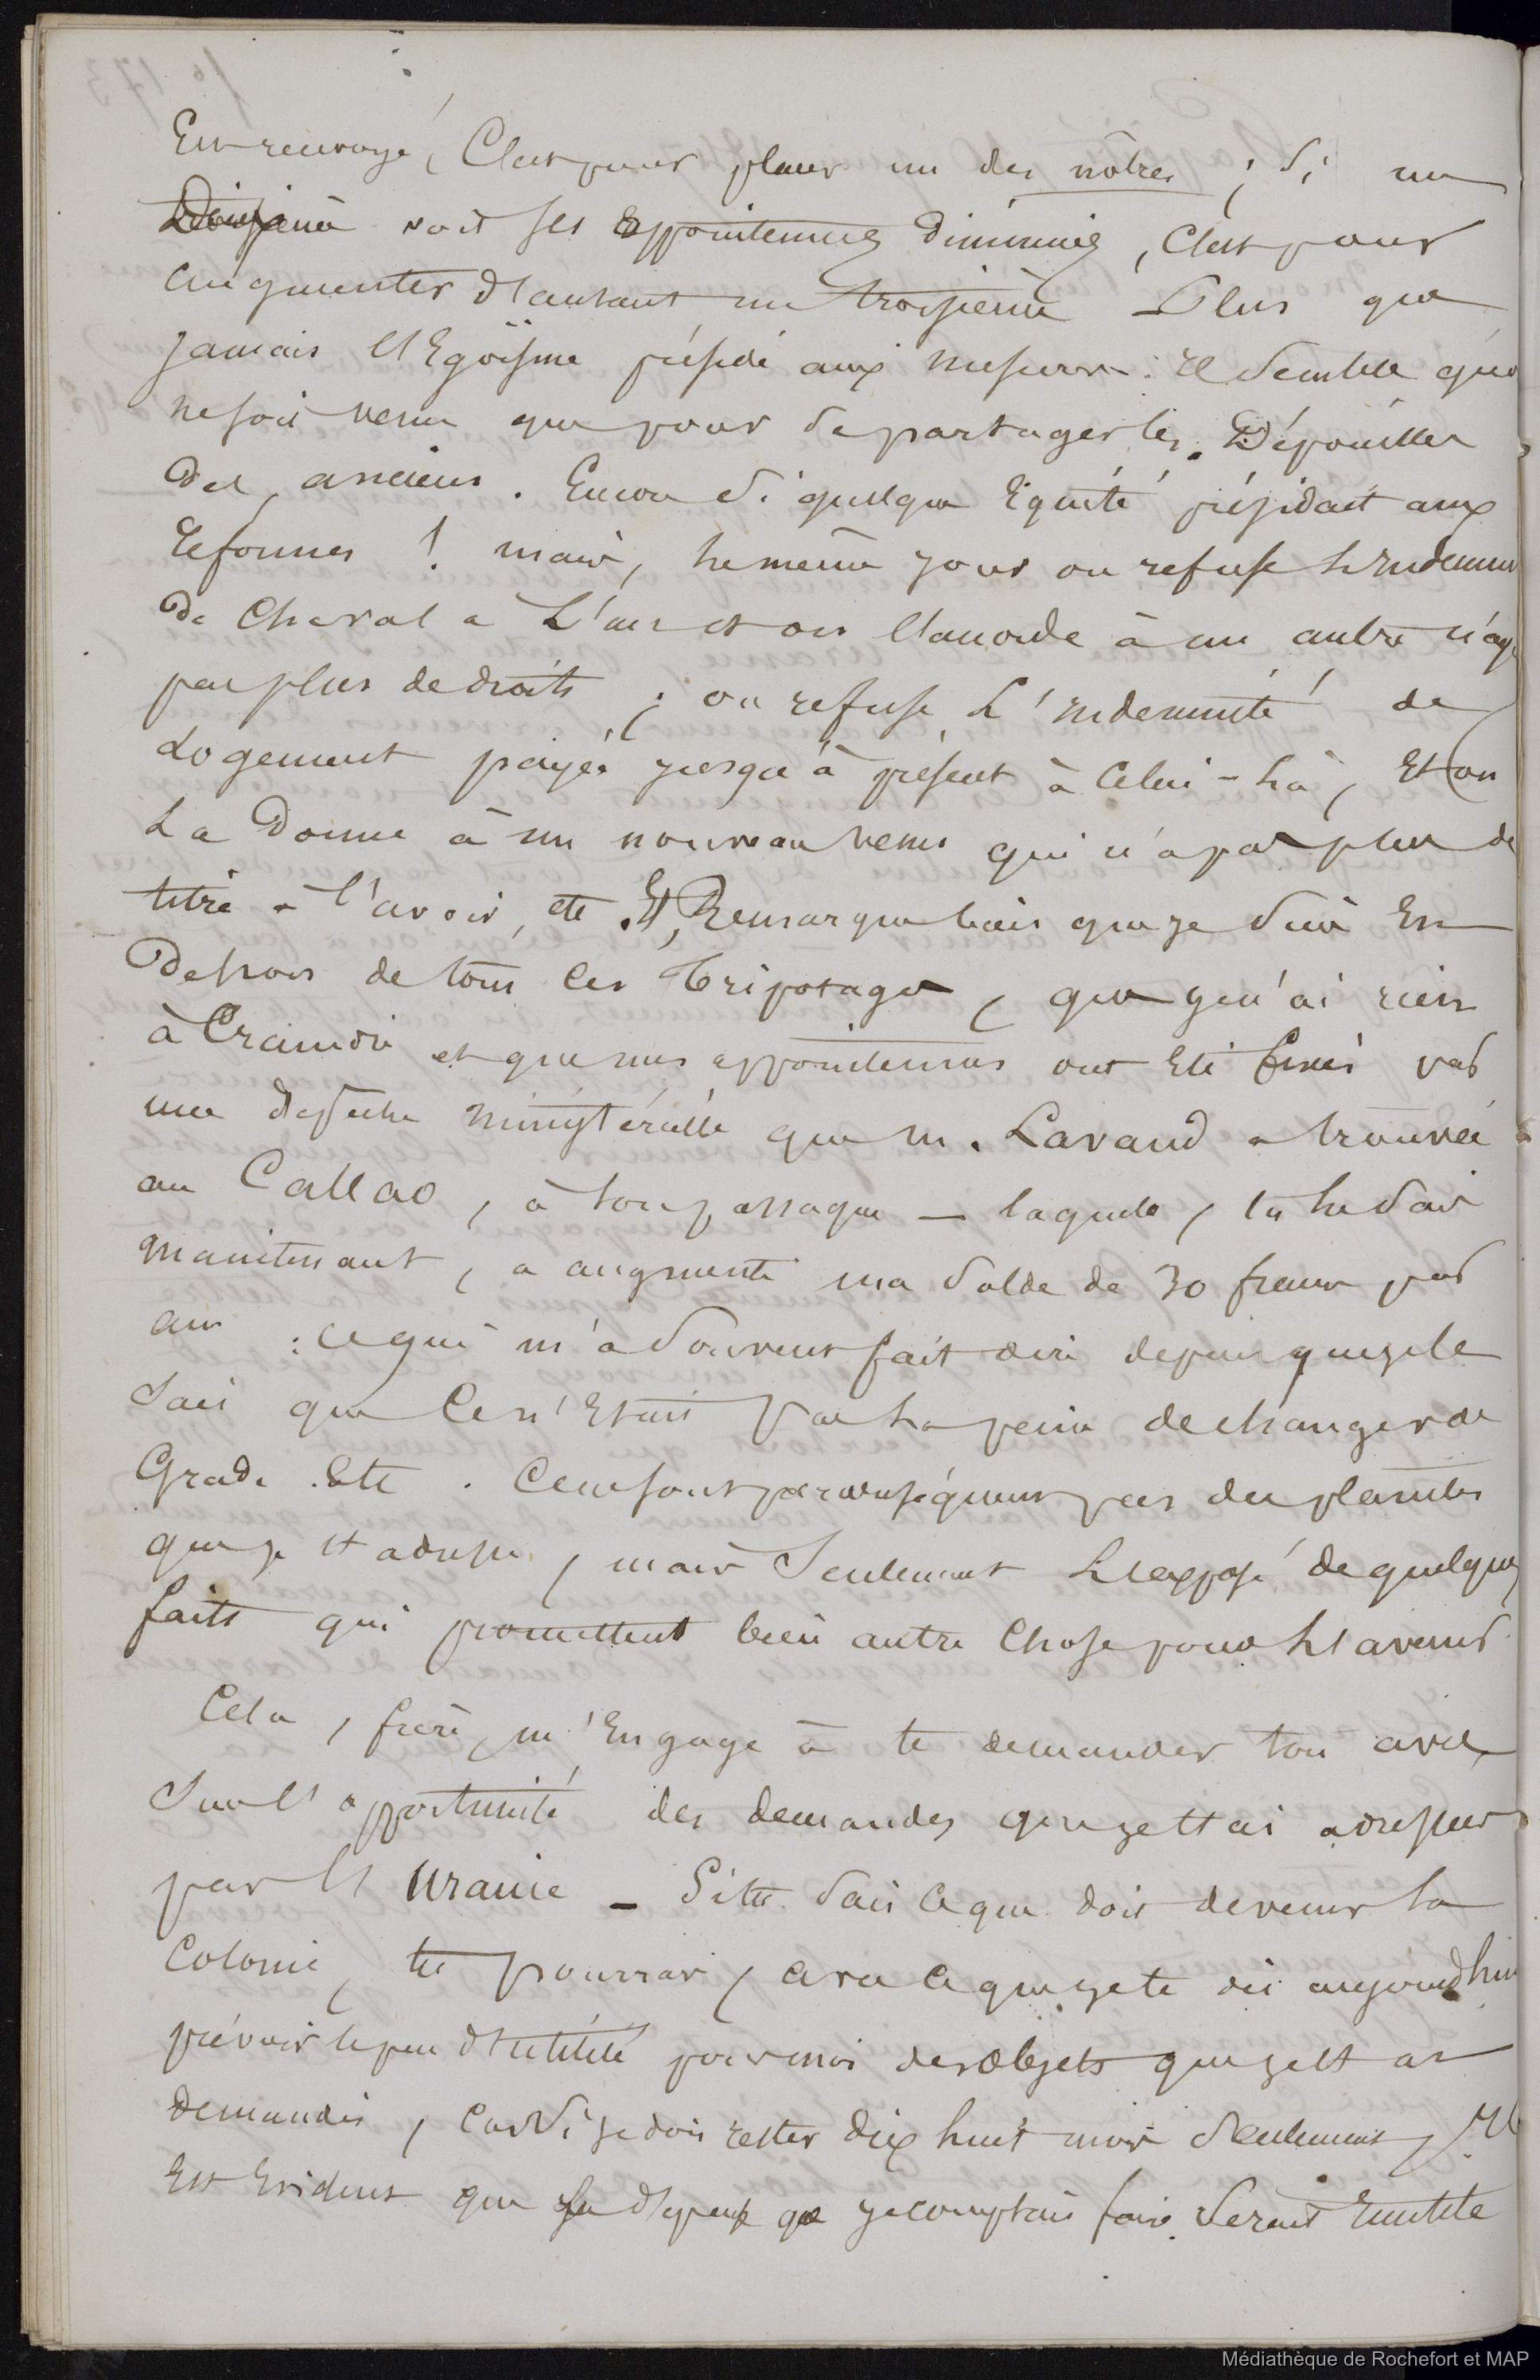 Est renvoyé, C'est pour placer un des nôtres ; Si un
Deuxième voit ses appointements diminués, C'est pour
augmenter d'autant un troisième – Plus que
jamais l'Egoïsme préside aux mesures : il Semble qu'on
ne soit venu que pour se partager les Dépouilles
des anciens. Encore Si quelque Equité présidait aux
reformes ! mais, le même jour on refuse l'indemnité
De Cheval a L'un et on l'accorde à un autre n'ayant
pas plus de droits ; on refuse L'indemnité de
Logement payée jusqu'à présent à Celui-là, Et on
La Donne à un nouveau venu qui n'a pas plus de
titre a l'avoir, etc. Et, Remarque bien que je Suis En
Dehors de tous Ces Tripotages, que je n'ai rien
à Craindre et que mes appointements ont Eté fixés par
une dépêche ministérielle que M. Lavaud a trouvée
au Callao, à son passage — laquelle, tu le Sais
Maintenant, a augmenté ma Solde de 30 francs par
an : ce qui m'a Souvent fait dire depuis que je le
Sais que Ce n'Etait Pas La peine de changer de
Grade. Etc. Ce ne sont par conséquent pas des plaintes
que je t'adresse, mais Seulement L'exposé de quelques
faits qui promettent bien autre Chose pour L'avenir.
Cela, frère, m'Engage à te demander ton avis
Sur l'opportunité des demandes que je t'ai adressées
par l'Uranie – Si tu Sais Ce que doit devenir la
Colonie, tu pourras, avec Ce que je te dis aujourd'hui
prévoir le peu d'utilité pour moi des objets que je t'ai
demandés, Car Si je dois rester dix huit mois Seulement, Il
Est Evident que la dépense que je comptais faire Serait Inutile
Médiathèque de Rochefort et MAP